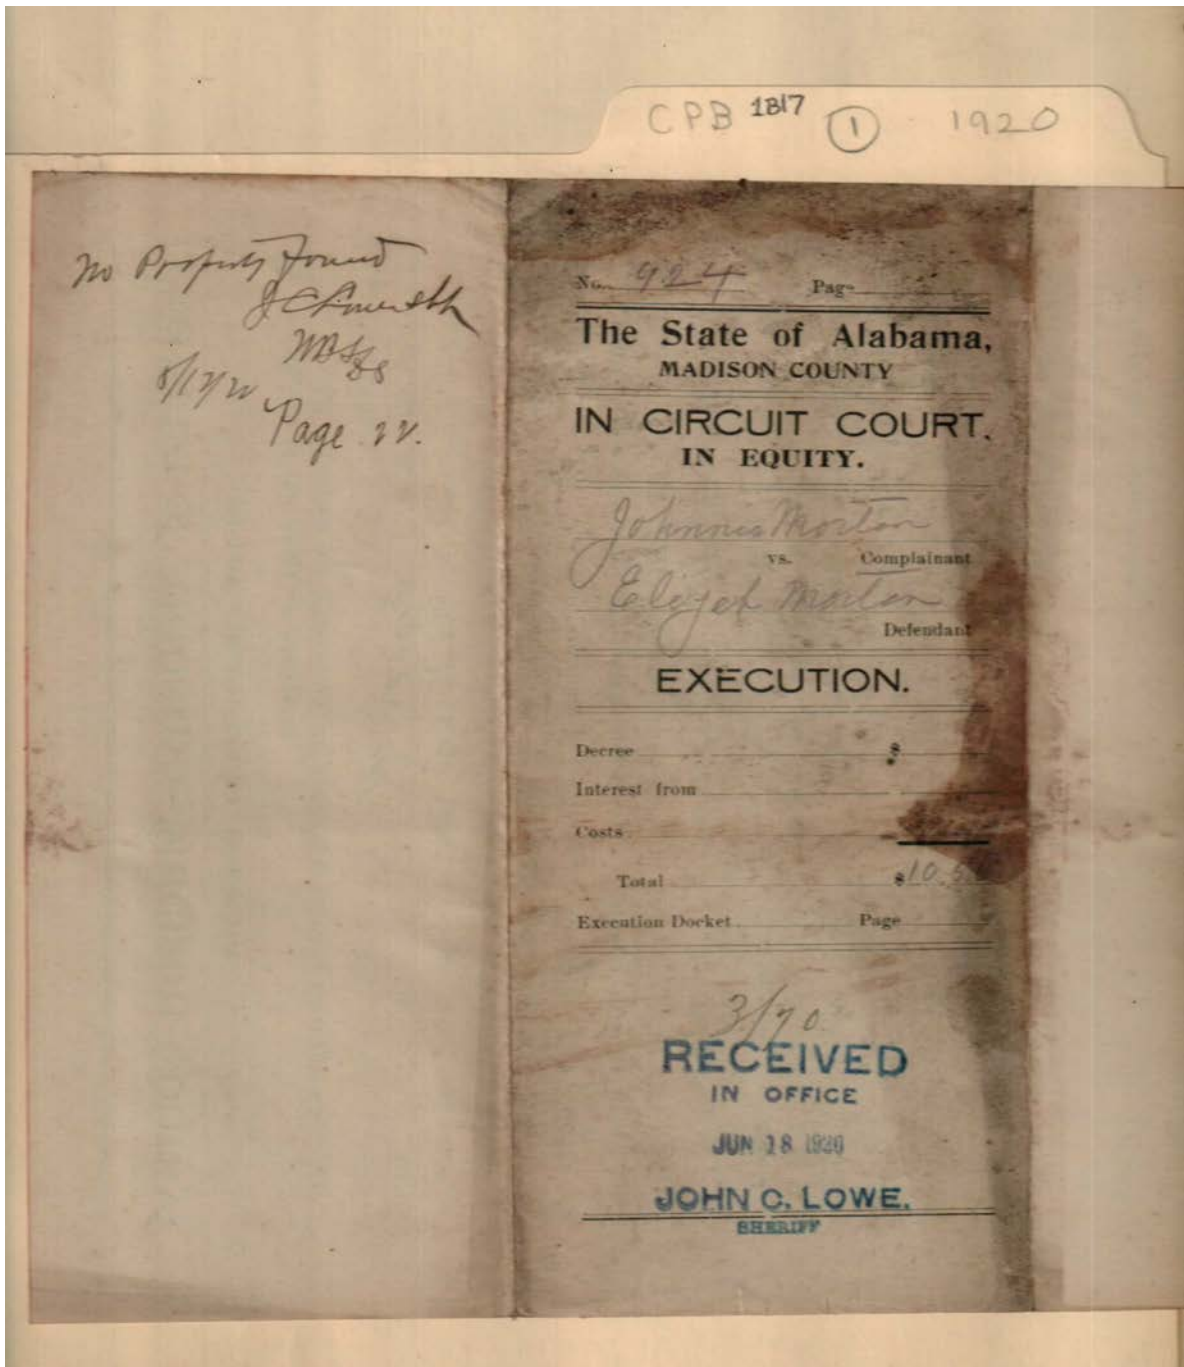 CPB 1817 1 1920
No Property Found
Page 22.
No. 924 Page
The State of Alabama,
MADISON COUNTY
IN CIRCUIT COURT.
IN EQUITY.
Johnnie Morton
vs. Complainant
Elijah Morton
Defendant
EXECUTION.
Decree $
Interest from
Costs
Total $10.
Execution Docket Page
3/70
RECEIVED
IN OFFICE
JUN 18 1920
JOHN C. LOWE.
SHERIFF